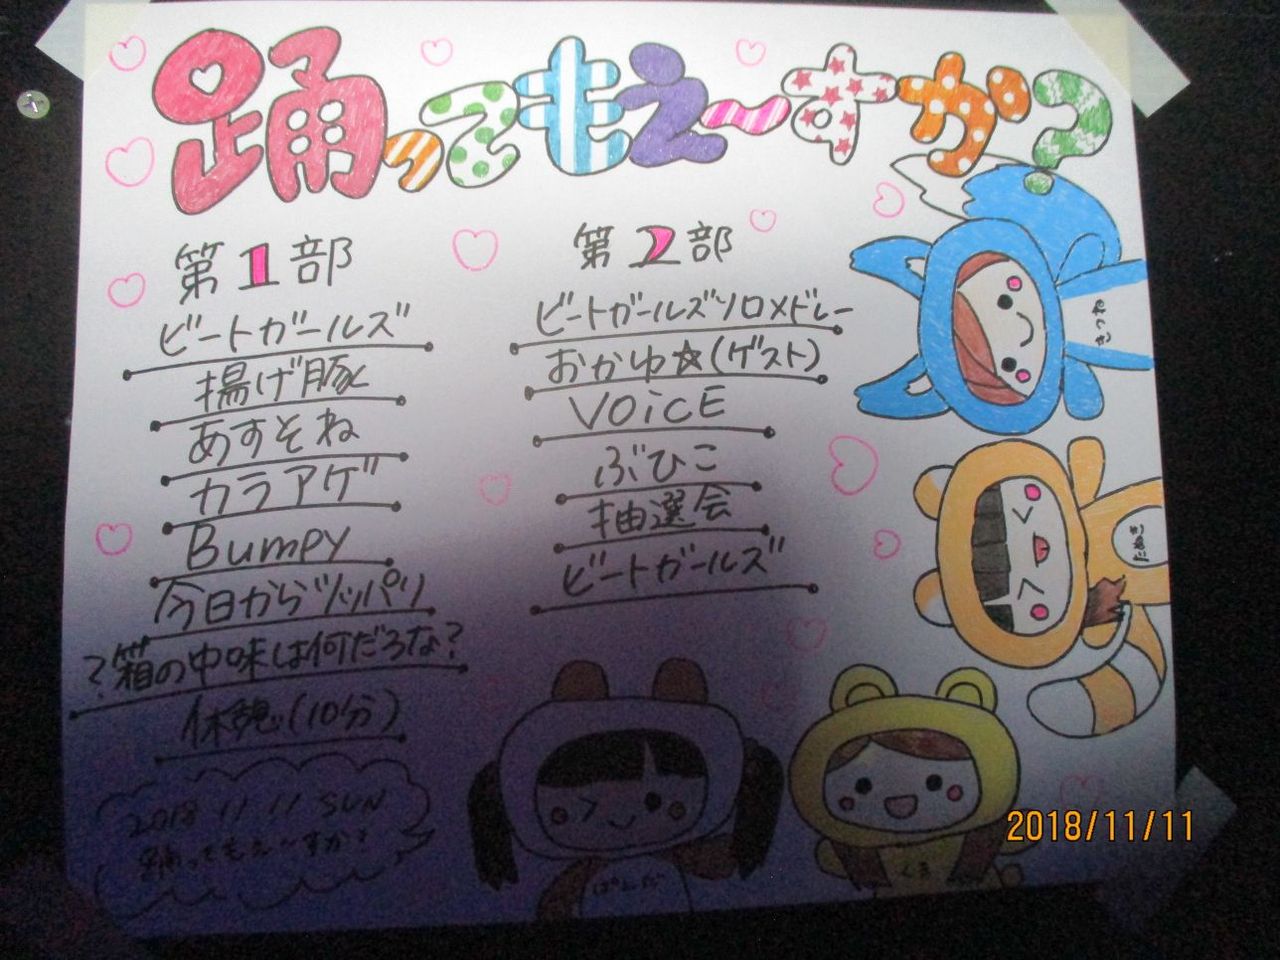 踊ってもえ〜すか?
第1部
ビートガールズ
揚げ豚
あすそね
カラアゲ
Bumpy
今日からツッパリ
?箱の中味は何だろな?
休憩(10分)
第2部
ビートガールズソロメドレー
おかゆ☆(ゲスト)
VOiCE
ぶひこ
抽選会
ビートガールズ
きつね
たぬき
ぱんだ
くま
2018 11 11 SUN
踊ってもえ〜すか?
2018/11/11